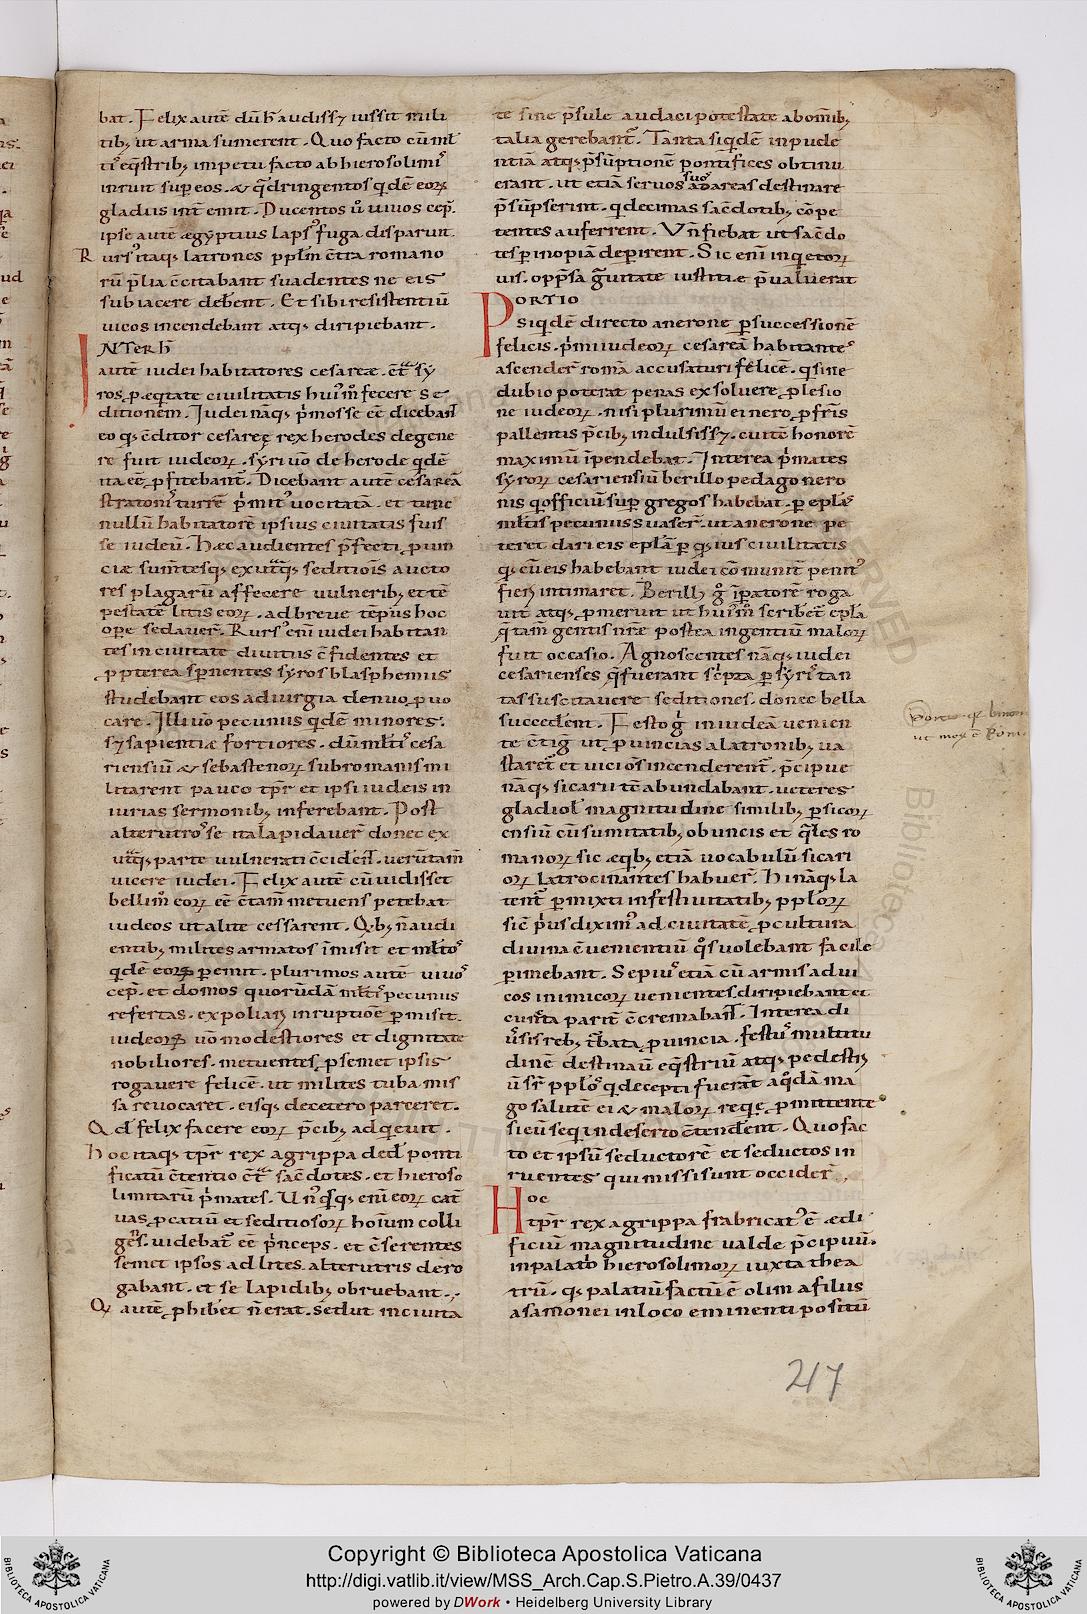 bat. Felix autē dū h̄ audisset iussit mili
tib; ut arma sumerent. Quo facto cū ml̄
tis eq̄strib; impetu facto ab hierosolimis
inruit sup eos. & q̄dringentos q̄dē eoꝝ
gladius intemit. Ducentos ū uiuos cep̄.
ipse autē ægyptius lapsus fuga disparuit.
Rursus itaq; latrones ppl̄m c̄tra romano
rū p̄lia c̄citabant suadentes ne eis
subiacere deberent. Et sibi resistentiū
uicos incendebant atq; diripiebant.
INTER h̄
autē iudei habitatores cesareæ. c̄tra sy
ros p æqtate ciuilitatis huiusm̄ fecere se
ditionem. Iudei nāq; p̄mos se eē dicebant
eo q; c̄ditor cesareę rex herodes de gene
re fuit iudeoꝝ. syri uō de herode q̄dē
ita eē p̄fitebant. Dicebant autē cesareā
stratonis turrē p̄mitus uocitatā. et tunc
nullū habitatorē ipsius ciuitatis fuis
se iudeū. Hæc audientes p̄fecti puin
ciæ sumtesq; ex utraq; seditiois aucto
res plagarū affecere uulnerib; et tē
pestatē litis eoꝝ. ad breue tēpus hoc
ope sedauer̄. Rursus eni iudei habitan
tes in ciuitate diuitiis c̄fidentes et
ppterea spnentes syros blasphemiis
studebant eos ad iurgia denuo puo
care. Illi uō pecuniis q̄dē minores.
sȝ sapientiæ fortiores. dū ml̄ti cesa
riensiū & sebastenoꝝ sub romanis mi
litarent pauco tp̄r et ipsi iudeis in
iurias sermonib; inferebant. Post
alterutros se ita lapidauer̄ donec ex
utraq; parte uulnerati c̄ciderent. uerūtam̄
uicere iudei. Felix autē cū uidisset
bellum eoꝝ eē c̄tam̄ metuens petebat
iudeos ut a lite cessarent. Q;b; n̄ audi
entib; milites armatos īmisit et ml̄tos
q̄dē eoꝝ pemit. plurimos autē uiuos
cep̄. et domos quorūdā ml̄tis pecuniis
refertas. expoliari inruptiōe pmisit.
iudeoꝝ uō modestiores et dignitate
nobiliores. metuentes p semet ipsis
rogauere felicē. ut milites tuba mis
sa reuocaret. eisq; de cetero parceret.
Qd̄ felix facere eoꝝ p̄cib; adqeuit.
hoc itaq; tp̄r rex agrippa ded̄ ponti
ficatū c̄tentio c̄tra sac̄dotes. et hieroso
limitarū p̄mates. Un̄ qsq; eni eoꝝ cat̄
uas pcatiū et seditiosoꝝ hoīum colli
gens. uidebat eē p̄nceps. et c̄serentes
semet ipsos ad lites. alterutris dero
gabant. et se lapidib; obruebant.
Q; autē phiberet n̄ erat. sed ut in ciuita
te sine p̄sule audaci potestate ab omib;
talia gerebant. Tanta siqdē inpude
ntiā atq; p̄sūptionē pontifices obtinu
erant. ut etiā seruos suos ad areas destinare
p̄sūpserint. q decimas sac̄dotib; cōpe
tentes auferrent. Un̄ fiebat ut sac̄do
tes p inopiā deperirent. Sic eni inqetoꝝ
uis. opp̄sa gͣuitate iustitię p̄ualuerat
PORTIO
siqdē directo a nerone p successionē
felicis. p̄mi iudeoꝝ cesareā habitantes
ascender̄ romā accusaturi felicē. q sine
dubio poterat penas exsoluere p lesio
ne iudeoꝝ. nisi plurimū ei nero p fr̄is
pallentis p̄cib; indulsisset. cui tē honorē
maximū īpendebat. Interea p̄mates
syroꝝ cesariensiū berillo pedagogo nero
nis q officiū sup gregos habebat. p eplās
ml̄tis pecuniis suaser̄. ut a nerone pe
teret dari eis eplā p q; ius ciuilitatis
q; cū eis habebant iudei cōmunit̄ penit;
fieri intimaret. Berillus g̊ īpatorē roga
uit atq; pmeruit ut huiusm̄ scriberet eplā
q̄ tam̄ gentis nr̄e postea ingentiū maloꝝ
fuit occasio. Agnoscentes nāq; iudei
cesarienses q̄ fuerant sc̄pta p syros tan
tas suscitauere seditiones. donec bella
succederent. Festo g̊ in iudeā uenien
te c̄tigit ut puincias a latronib; ua
staret̄ et uici ōs incenderent̄. p̄cipue
nāq; sicarii tē abundabant. ueteres
gladiolos magnitudine similib; p sicoꝝ
ensiū cū sumitatib; obuncis et q̄les ro
manoꝝ sic æqb; etiā uocabulū sicari
oꝝ latrocinantes habuer̄. Hi nāq; la
tent̄ pmixti in festiuitatib; pploꝝ
sic p̄us diximus ad ciuitatē p cultura
diuina c̄uenientiū q̄s uolebant facile
pimebant. Sepius etiā cū armis ad ui
cos inimicoꝝ uenientes diripiebant et
cuncta parit̄ c̄cremabant. Interea di
ūsis reb; t̄bata puincia. festus multitu
dinē destinauit eq̄striū atq; pedestriū
ū sr̄ pplos q decepti fuerat̄ a qdā ma
go salutē ei & maloꝝ reqe pmittente
si eū seqn deserto c̄tenderent. Quo fac
to et ipsū seductorē et seductos in
ruentes qui missi sunt occider̄.
Hoc
tp̄r rex agrippa frabricatus ē ædi
ficiū magnitudine ualde p̄cipuū.
in palatio hierosolimoꝝ iuxta thea
trū. q; palatiū factū ē olim a filiis
asamonei in loco eminenti positū
217
RESERVED
Biblioteca
Copyright © Biblioteca Apostolica Vaticana
http://digi.vatlib.it/view/MSS_Arch.Cap.S.Pietro.A.39/0437
powered by DWork • Heidelberg University Library
BIBLIOTECA APOSTOLICA VATICANA
BIBLIOTECA APOSTOLICA VATICANA